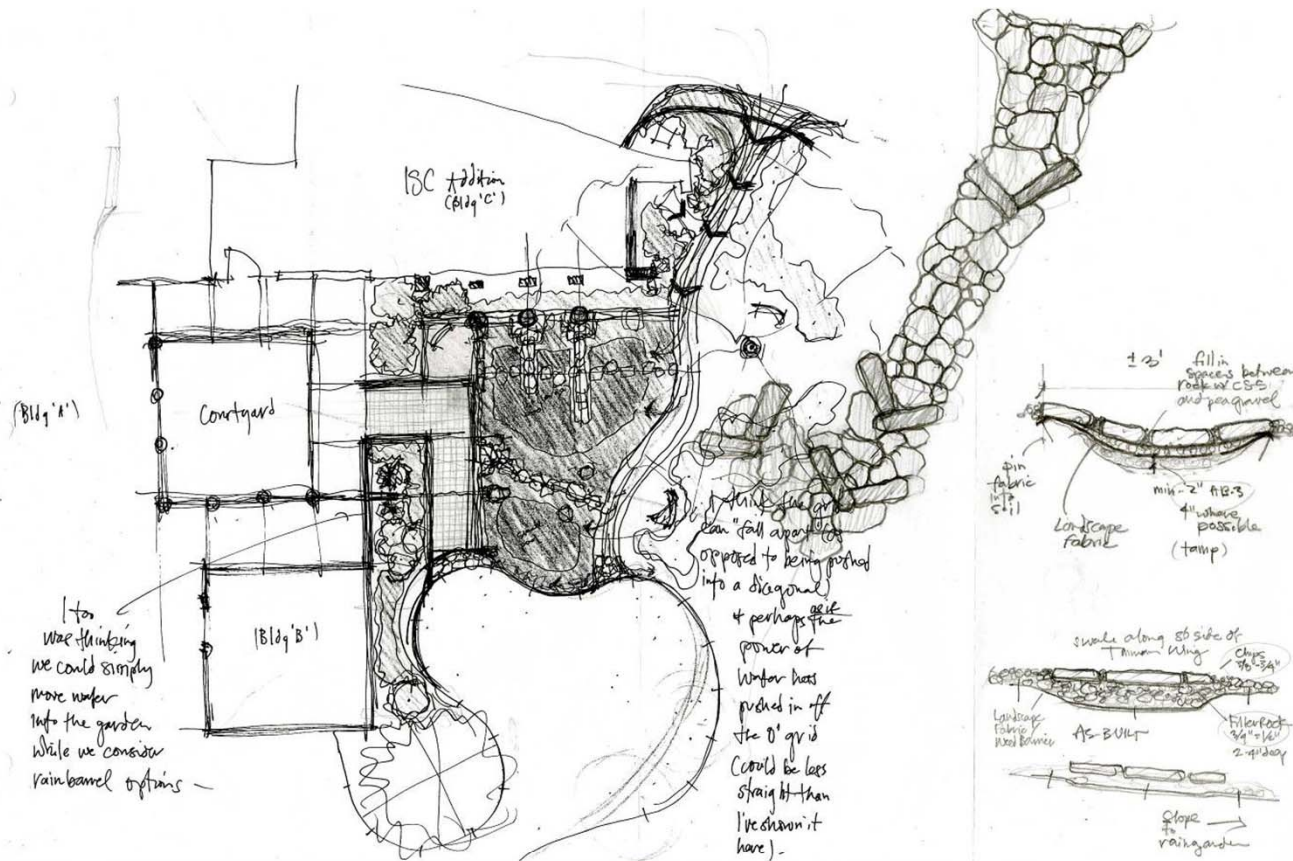 ISC Addition
(Bldg 'C')
(Bldg 'A')
Courtyard
(Bldg 'B')
I too
was thinking
we could simply
move water
into the garden
while we consider
rainbarrel options -
think the
can "fall apart" as
opposed to being pushed
into a diagonal
& perhaps as if the
power of
water has
pushed it off
the 0' grid
(could be less
straight than
I've shown it
here) -
± 3'
fill in
spaces between
rock w/ CSS
and pea gravel
pin
fabric
into
soil
Landscape
Fabric
min - 2" AB-3
4" where
possible
(tamp)
swale along side of
Wing
chips
3/8"-3/4"
Landscape
Fabric/
Weed Barrier
AS-BUILT
Filler Rock
2-4" deep
Slope
to
raingarden